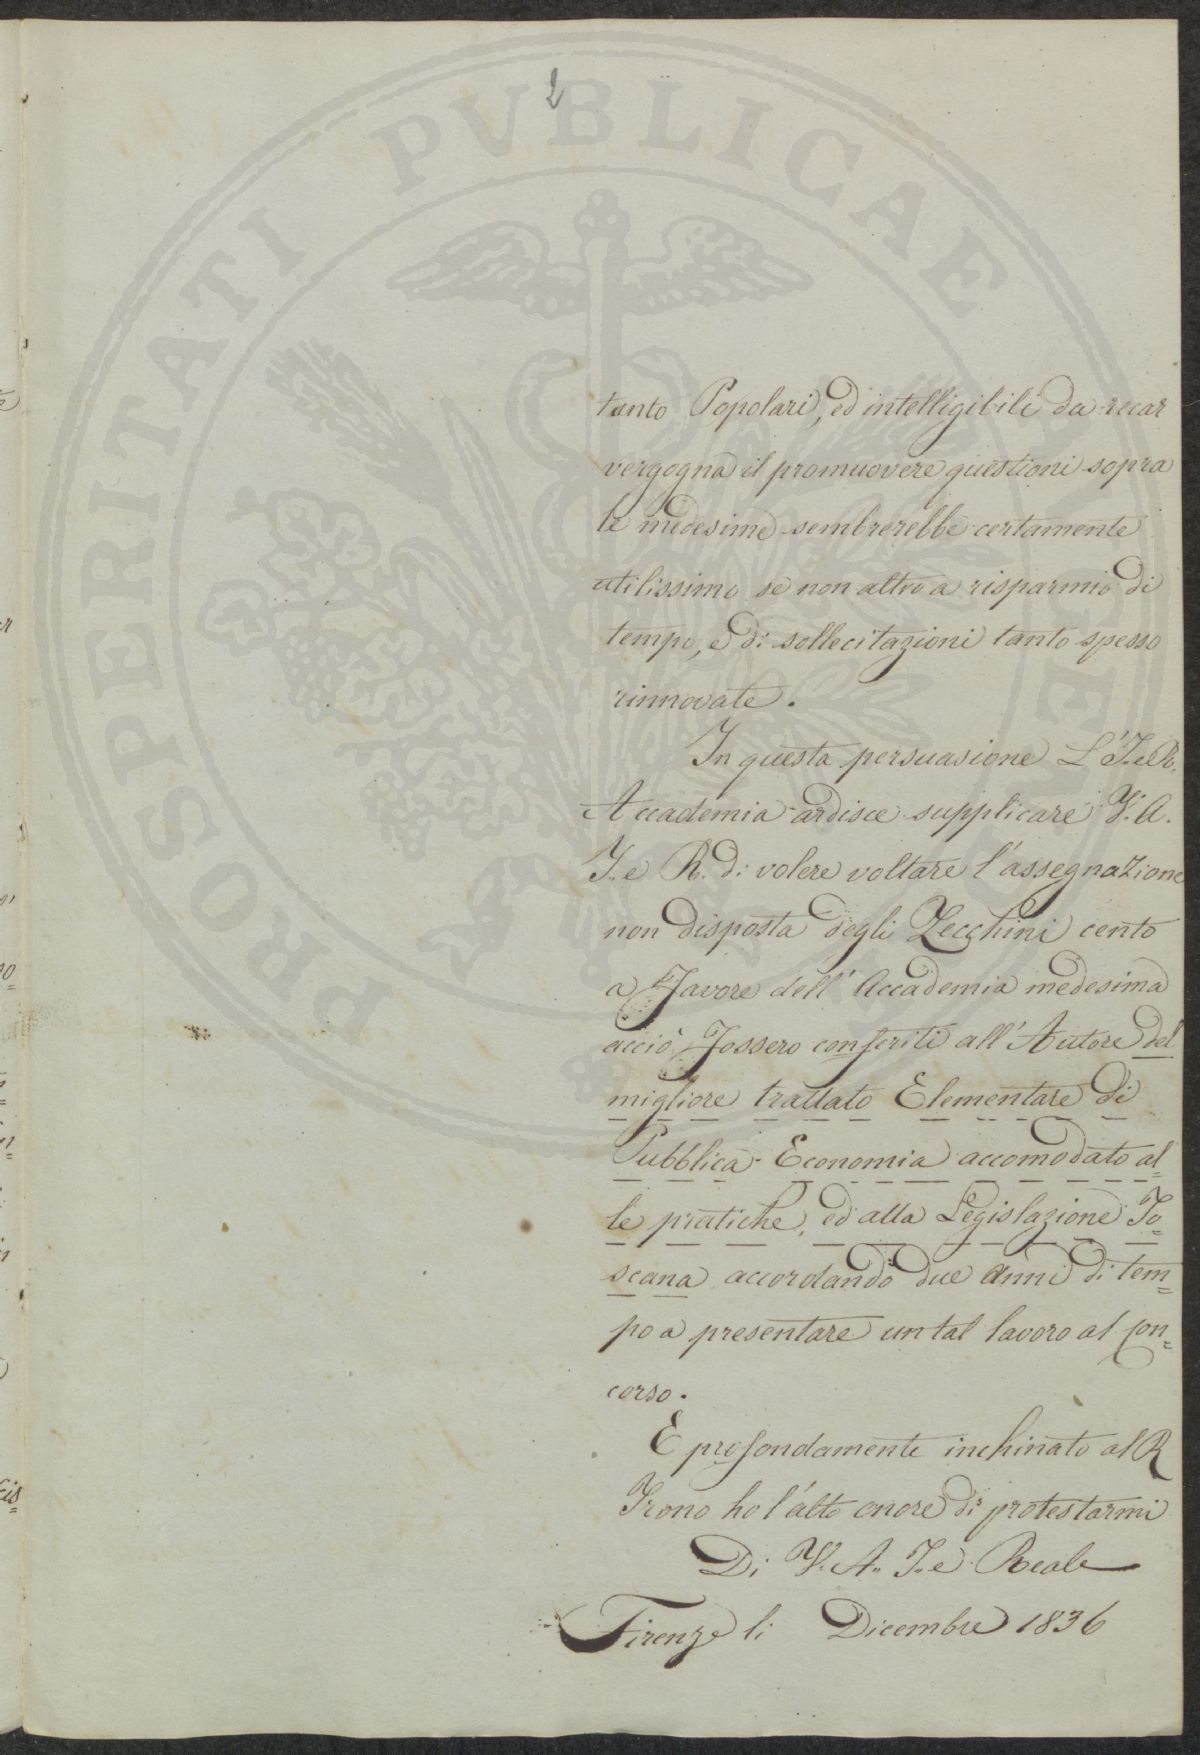 2
tanto Popolari, ed intelligibili da recar
vergogna il promuovere questioni sopra
le medesime sembrerebbe certamente
utilissimo se non altro a risparmio di
tempo, e di sollecitazioni tanto spesso
rinnovate.
In questa persuasione L'I. e R.
Accademia ardisce supplicare V. A.
I. e R. di volere voltare l'assegnazione
non disposta degli Zecchini cento
a Favore dell'Accademia medesima
acciò Fossero conferiti all'Autore del
migliore trattato Elementare di
Pubblica Economia accomodato al=
le pratiche, ed alla Legislazione To=
scana accordando due Anni di tem=
po a presentare un tal lavoro al Con=
corso.
E profondamente inchinato al R
Trono ho l'alto onore di protestarmi
Di V. A. I. e Reale
Firenze li Dicembre 1836
PROSPERITATI PVBLICAE